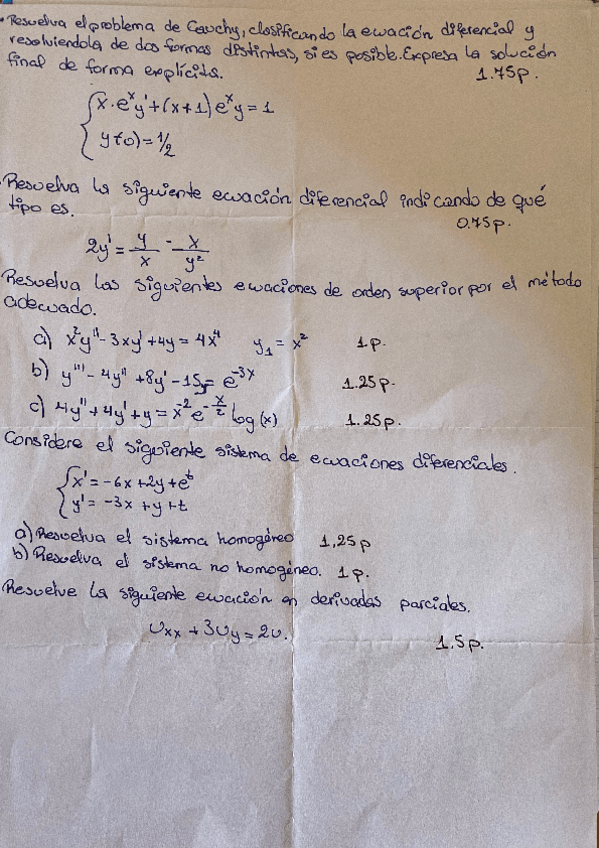 • Resuelva el problema de Cauchy, clasificando la ecuación diferencial y
resolviendola de dos formas distintas, si es posible. Expresa la solución
final de forma explícita. 1.75p.
{ x·eˣy' + (x+1)eˣy = 1
{ y(0) = 1/2
• Resuelva la siguiente ecuación diferencial indicando de qué
tipo es. 0.75p.
2y' = y/x - x/y²
Resuelva las siguientes ecuaciones de orden superior por el método
adecuado.
a) x²y'' - 3xy' + 4y = 4x⁴ y₁ = x² 1p.
b) y''' - 4y'' + 8y' - 15y = e⁻³ˣ 1.25p.
c) 4y'' + 4y' + y = x⁻² e^(-x/2) log(x) 1.25p.
Considere el siguiente sistema de ecuaciones diferenciales.
{ x' = -6x + 2y + eᵗ
{ y' = -3x + y + t
a) Resuelva el sistema homogéneo 1,25p
b) Resuelva el sistema no homogéneo. 1p.
Resuelve la siguiente ecuación en derivadas parciales.
Uxx + 3Uy = 2u. 1.5p.